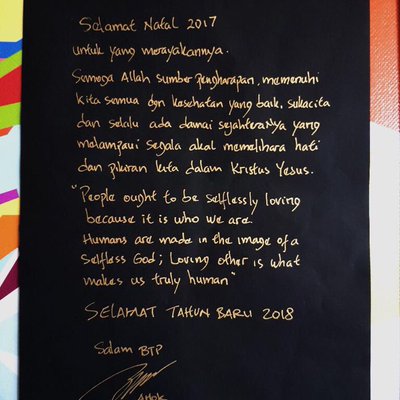 Selamat Natal 2017
untuk yang merayakannya.
Semoga Allah sumber pengharapan memenuhi
kita semua dgn kesehatan yang baik, sukacita
dan selalu ada damai sejahteraNya yang
melampaui segala akal memelihara hati
dan pikiran kita dalam Kristus Yesus.
"People ought to be selflessly loving
because it is who we are.
Humans are made in the image of a
selfless God; Loving other is what
makes us truly human"
SELAMAT TAHUN BARU 2018
Salam BTP
Ahok